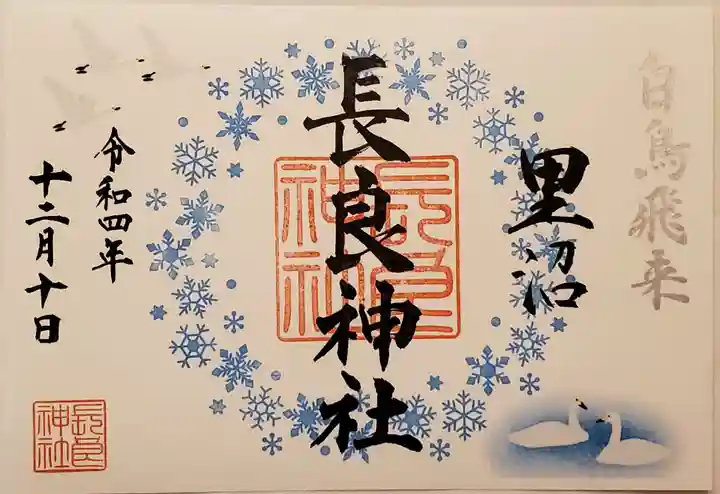 白鳥飛来
里沼
長良神社
長良神社
令和四年
十二月十日
長良神社